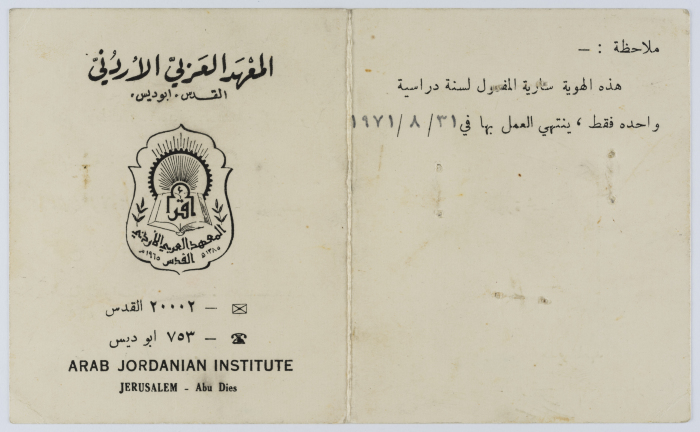 المعهد العربيّ الأردنيّ
القدس، ابوديس،
اقرأ
المعهد العربي الأردني
القدس
١٣٨٥ هـ
١٩٦٥ م
٢٠٠٠٢ القدس
٧٥٣ ابو ديس
ARAB JORDANIAN INSTITUTE
JERUSALEM - Abu Dies
ملاحظة : —
هذه الهوية سارية المفعول لسنة دراسية
واحده فقط ، ينتهي العمل بها في ٣١/ ٨ /١٩٧١